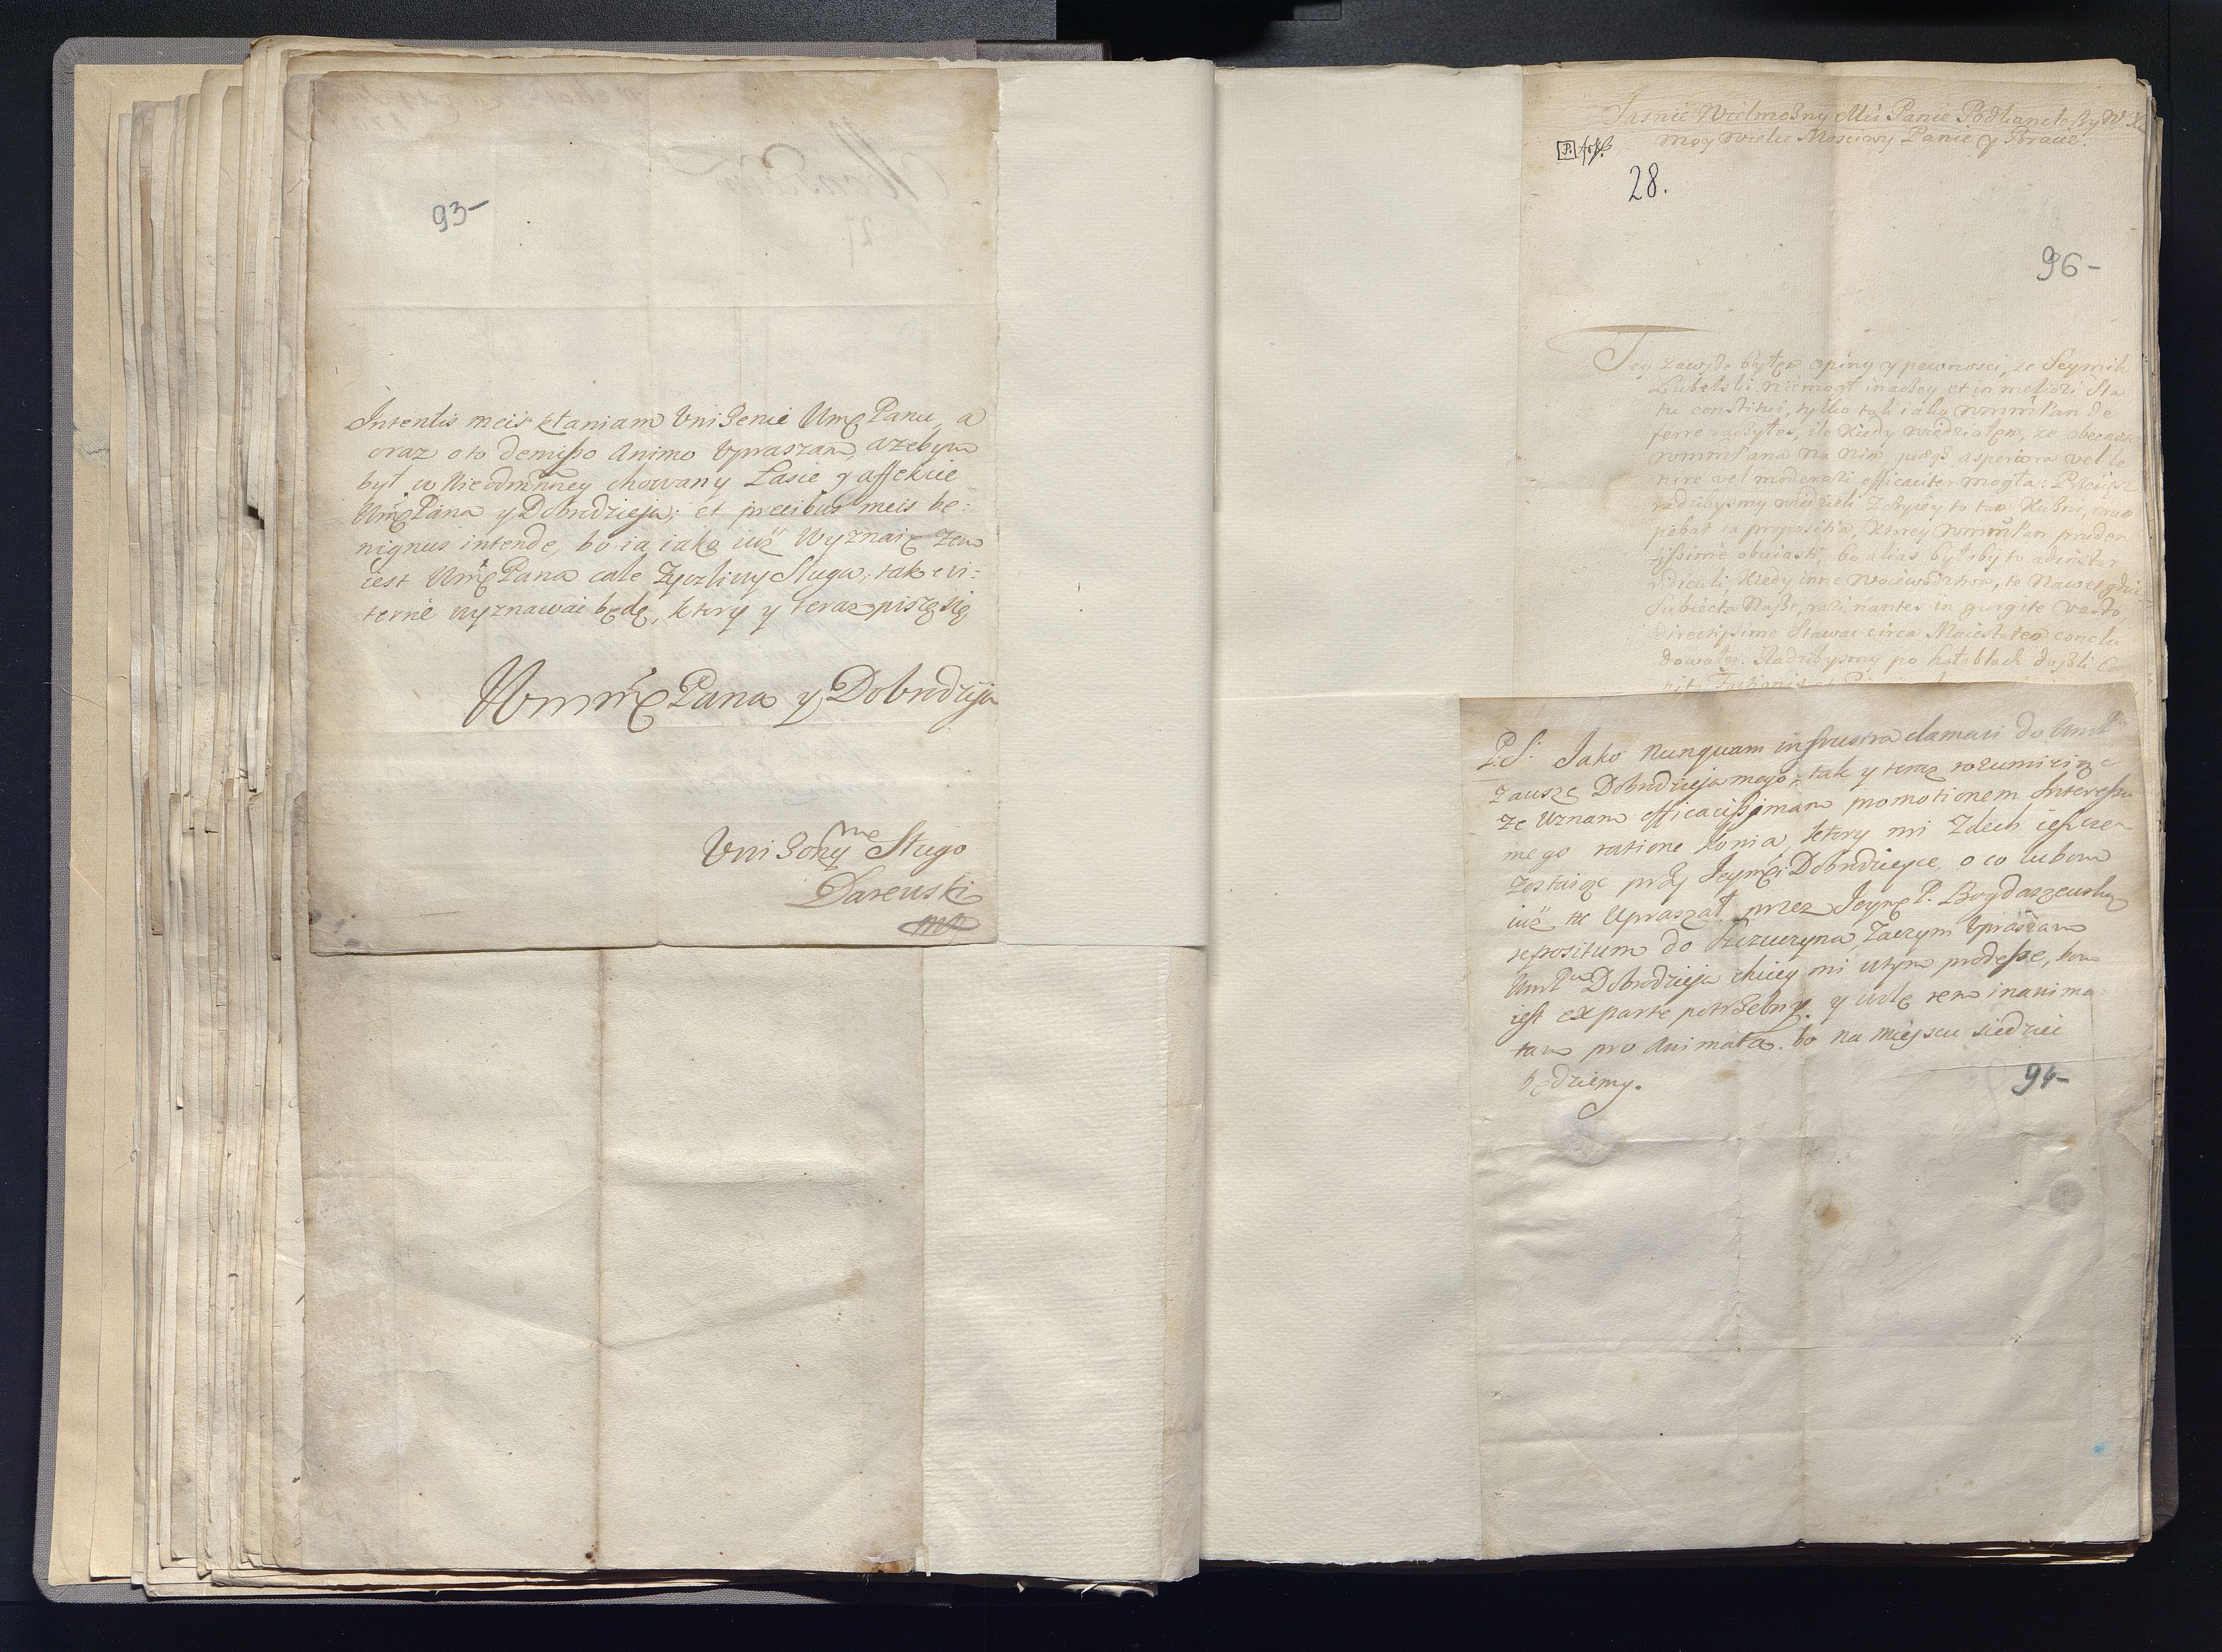 93-
Intentis meis kłaniam Vniżenie Umę Panu, a
oraz oto demisso Animo Vpraszam, azebym
był w Nieodmienney chowany Łasce y affekcie
Umę Pana y Dobrodzieja; et precibus meis be:
nignus intende, bo ia iako iuż Wyznaię zem
iest Umę Pana cale Zyczliwy Sługa, tak e vi:
ternie wyznawać będę, ktory y teraz piszę się
Wmmę Pana y Dobrodzieja
Vniżony Sługo
Darewski
mp
Jasnie Wielmożny Mści Panie Podkanclerzy W X
moy wielce Mosciwy Panie y Bracie.
28.
96-
Tey zawsze byłem opiny y pewnosci, ze Seymik
Lubelski niemogł inaczey et in meliori Sta
tu constitui, tylko tak iako wmmPan de
ferre raczyłes, ile kiedy wiedziałem, ze obecność
wmmPana na nim asperiora vel le
nire vel moderari efficaciter mogła:
radzibysmy widzieli
pebat ta propositia, ktorey wmmPan pruden
tissime obviasti, bo alias byłoby to ad instar
ridiculi, kiedy inne Woiewodztwa, te Nawet gdzie
Subiecta Nasze, rari nantes in gurgite vasto,
directissime Stawać circa Maiestatem conclu
dowały. Radzibysmy po doszli
P.S. Jako Nunquam infrustra clamavi do
zawszę Dobrodzieja mego, tak y teraz rozumieiąc
ze Uznam efficacissimam promotionem Interessu
mego ratione konia, ktory mi Zdech ieszcze
zostaiąc przy Jeymći Dobrodzieyce, o co lubom
iuż Upraszał przez Jeymę P. Bogdaszewską
repositum do Szczuczyna, Zaczym Vpraszam
Dobrodzieja chciey mi wtym prodesse, bom
iest exparte potrzebny. y wolę rem inanima
tam pro Animata. bo na mieyscu siedzieć
będziemy.
94-